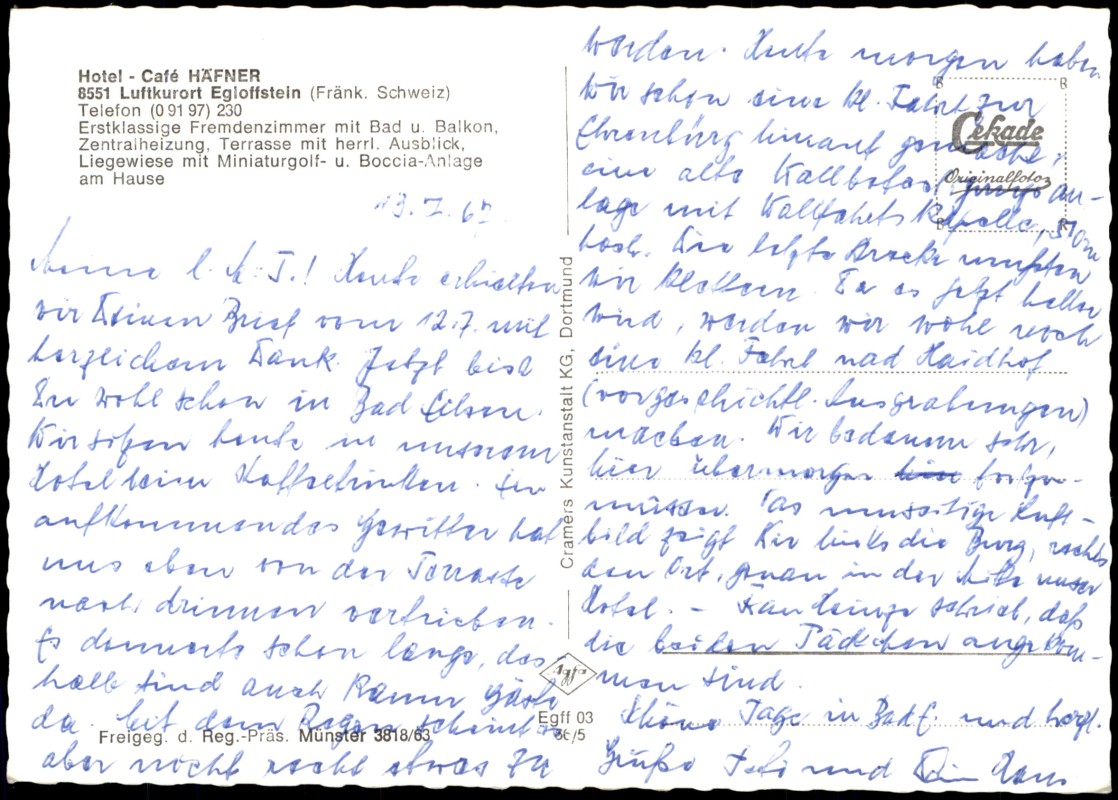 Hotel - Café HÄFNER
8551 Luftkurort Egloffstein (Fränk. Schweiz)
Telefon (0 91 97) 230
Erstklassige Fremdenzimmer mit Bad u. Balkon,
Zentralheizung, Terrasse mit herrl. Ausblick,
Liegewiese mit Miniaturgolf- u. Boccia-Anlage
am Hause
13.7.67.
Meine l. M. T.! Heute erhielten
wir Deinen Brief vom 12.7. mit
herzlichem Dank. Jetzt bist
Du wohl schon in Bad Eilsen.
Wir sitzen heute in unserem
Hotel beim Kaffeetrinken. Ein
aufkommendes Gewitter hat
uns eben von der Terrasse
nach drinnen vertrieben.
Es donnerts schon lange, des
halb sind auch kaum Gäste
da. Mit dem Regen scheint es
aber nicht recht etwas zu
Freigeg. d. Reg.-Präs. Münster 3818/63
Cramers Kunstanstalt KG, Dortmund
Agfa
Egff 03
56/5
Cekade
Originalfoto
werden. Heute morgen haben
wir schon eine kl. Fahrt zur
Ehrenbürg hinauf gemacht,
eine alte an-
lage mit Wallfahrtskapelle, 510m
hoch. Die letzte Strecke mußten
wir klettern. Da es jetzt heller
wird, werden wir wohl noch
eine kl. Fahrt nach Haidhof
(vorgeschichtl. Ausgrabungen)
machen. Wir bedauern sehr,
hier übermorgen fort zu
müssen. Das umseitige Luft-
bild zeigt Dir links die Burg, rechts
den Ort, genau in der Mitte unser
Hotel. - Frau schrieb, daß
die beiden Päckchen angekom-
men sind.
Schöne Tage in Bad E. und herzl.
Grüße und Dein Hans